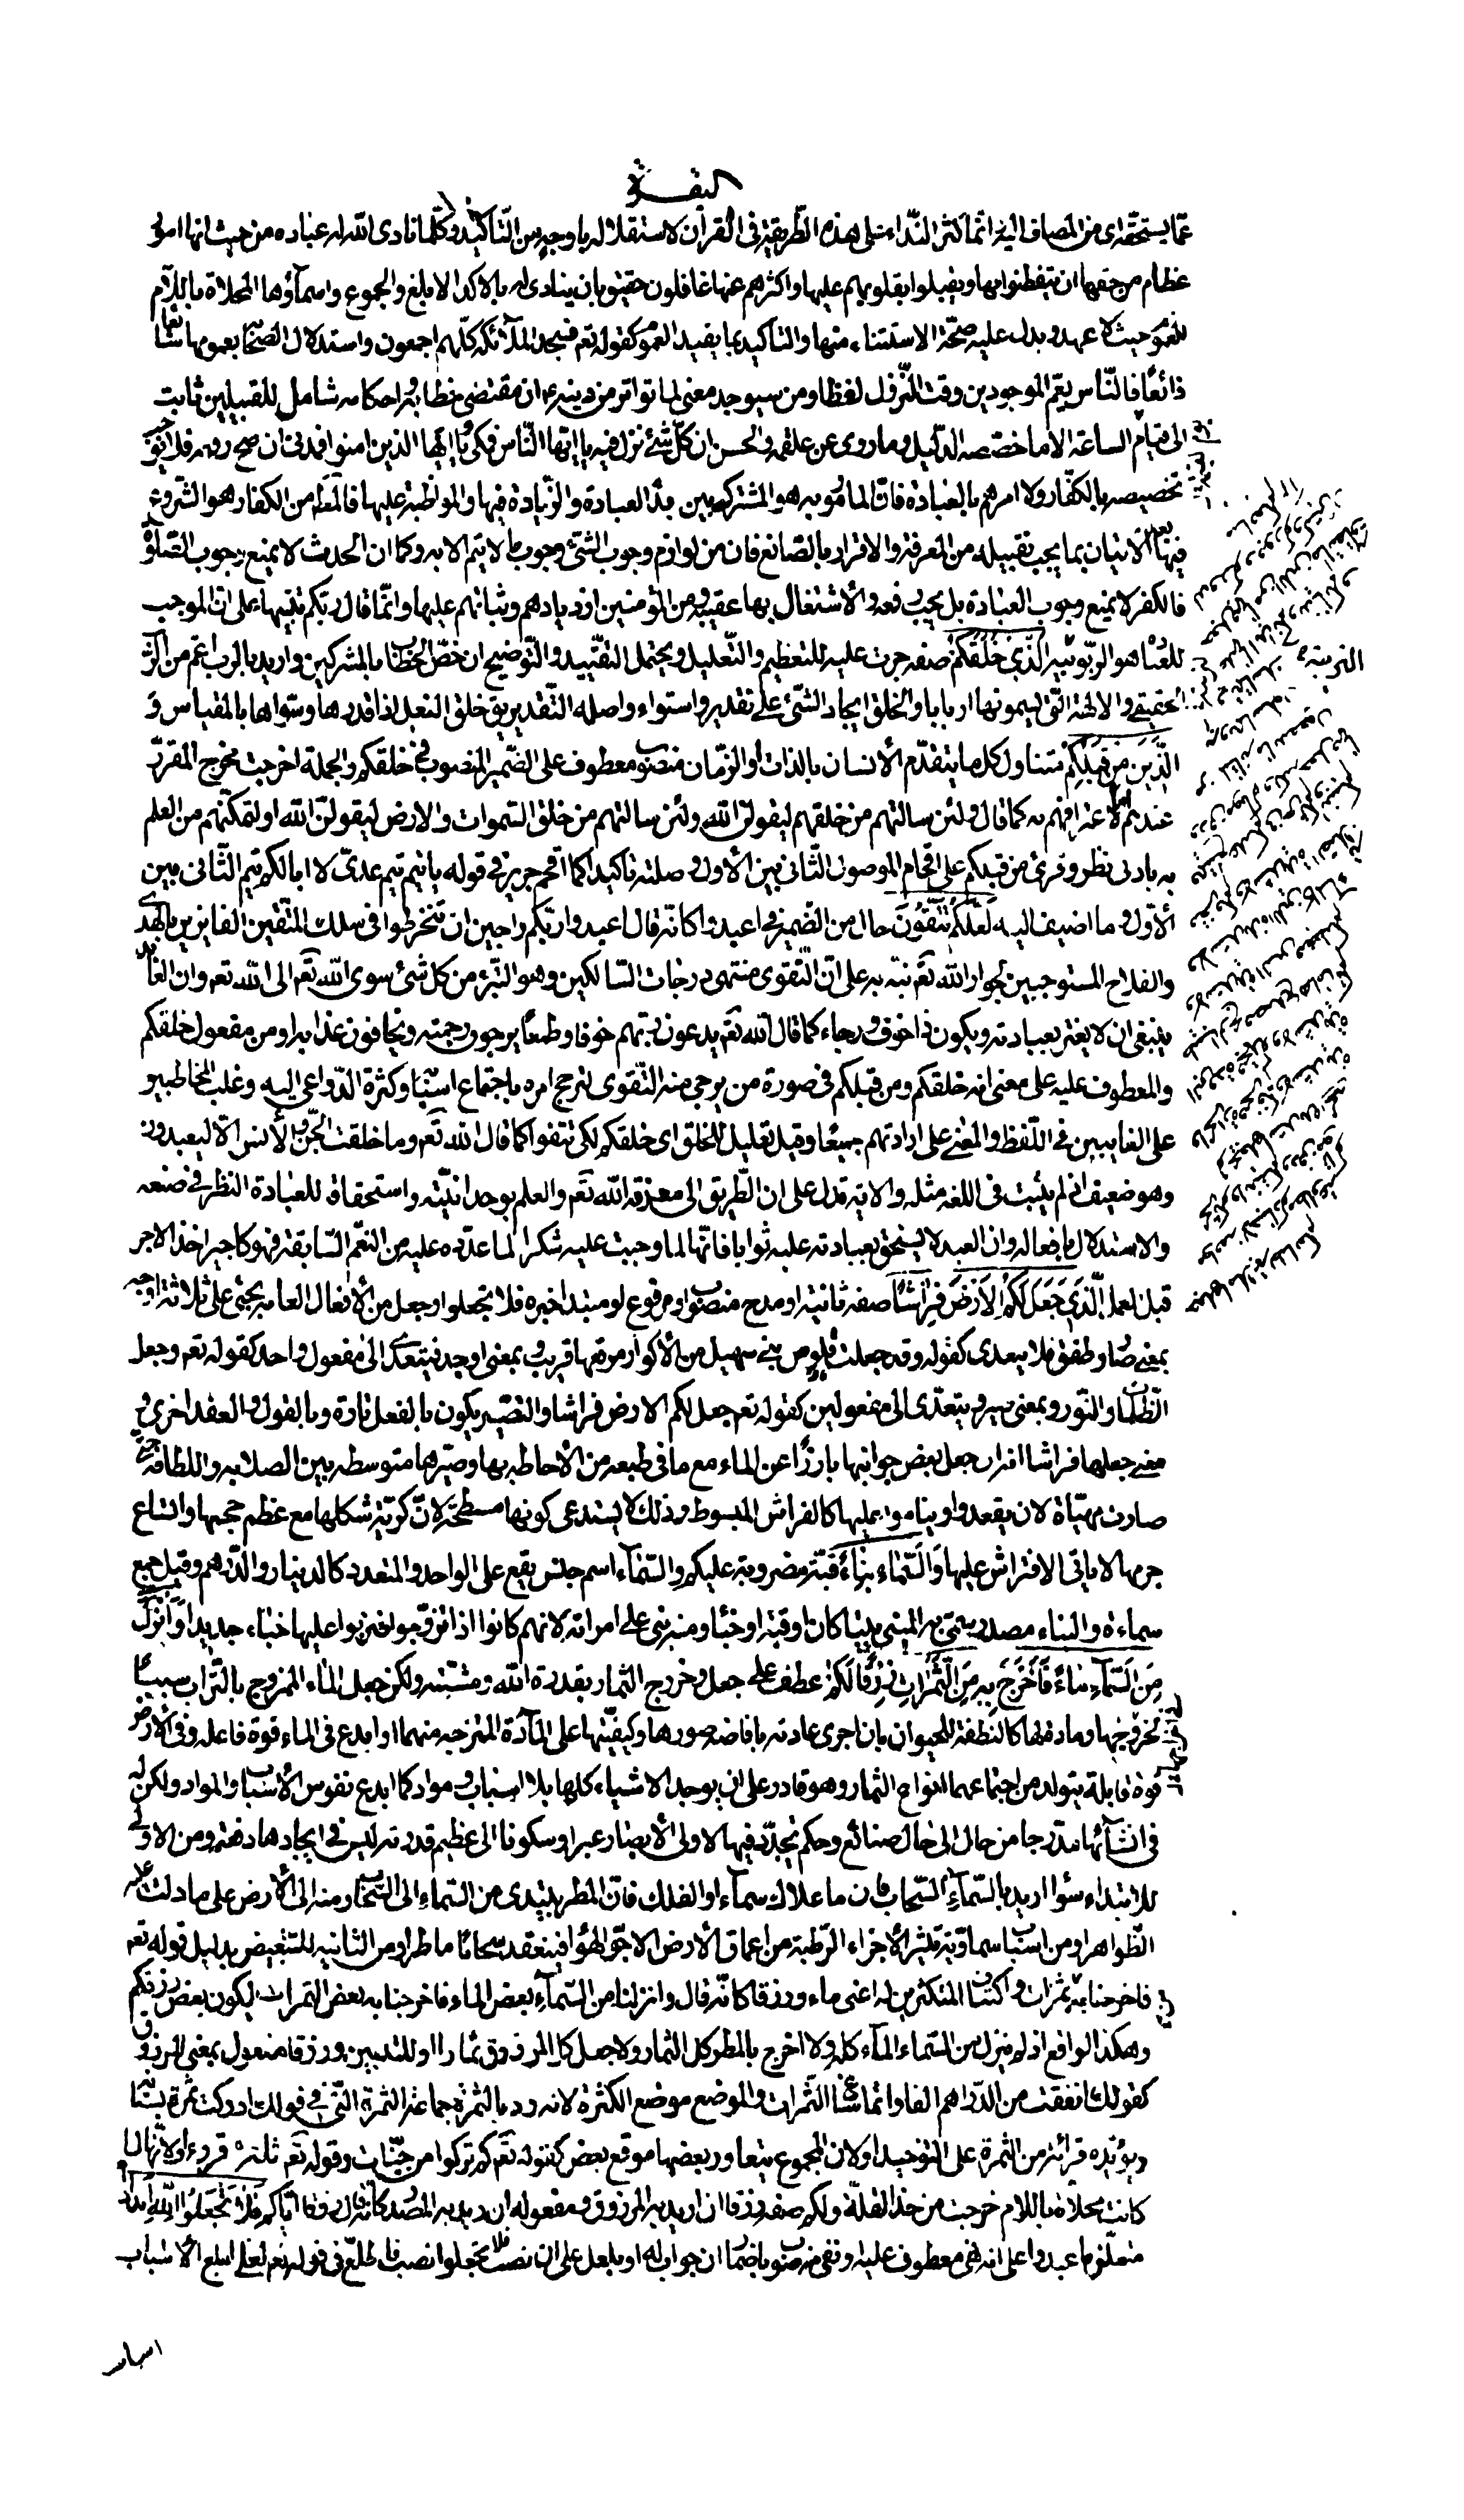 البقرة
عما يستحقه اى من المضاف اليه انما كثر النداء على هذه الطريقة فى القرآن لاستقلاله باوجه من التاكيد وكلما نادى الله له عباده من حيث انها امور
عظام من حقها ان يتفطنوا لها ويقبلوا بقلوبهم عليها واكثرهم عنها غافلون حقيق بان ينادى له بالاكد الابلغ والجموع واسماؤها المحلاة باللام
للعموم حيث لا عهد ويدل عليه صحة الاستثناء منها والتاكيد بما يفيد العموم كقوله تع فسجد الملائكة كلهم اجمعون واستدلال الصحابة بعمومها شائعا
ذائعا فالناس يعم الموجودين وقت النزول لفظا ومن سيوجد معنى لما تواتر من دينه ع ان مقتضى خطابه واحكامه شامل للقبيلين ثابت
الى قيام الساعة الا ما خصصه الدليل وما روى عن علقمة والحسن ان كل شئ نزل فيه يا ايها الناس فمكى ويا ايها الذين امنوا فمدنى ان صح رفعه فلا يوجب
تخصيصه بالكفار ولا امرهم بالعبادة فان المامور به هو المشترك بين بدأ العبادة والزيادة فيها والمواظبة عليها فالمطلوب من الكفار هو الشروع
فيها بعد الاتيان بما يجب تقديمه من المعرفة والاقرار بالصانع فان من لوازم وجوب الشئ وجوب ما لا يتم الا به وكما ان الحدث لا يمنع وجوب الصلوة
فالكفر لا يمنع وجوب العبادة بل يجب رفعه والاشتغال بها عقيبه ومن المؤمنين ازديادهم وثباتهم عليها وانما قال ربكم تنبيها على ان الموجب
للعبادة هو الربوبية الَّذِي خَلَقَكُمْ صفة جرت عليه للتعظيم والتعليل ويحتمل التقييد والتوضيح ان خص الخطاب بالمشركين واريد بالرب اعم من الرب
الحقيقى والالهة التى يسمونها اربابا والخلق ايجاد الشئ على تقدير واستواء واصله التقدير يق خلق النعل اذا قدرها وسواها بالمقياس وَ
الَّذِينَ مِنْ قَبْلِكُمْ متناول كل ما يتقدم الانسان بالذات او الزمان منصوب معطوف على الضمير المنصوب فى خلقكم والجملة اخرجت مخرج المقرر
عندهم اما لاعترافهم به كما قال ولئن سالتهم من خلقهم ليقولن الله ولئن سالتهم من خلق السموات والارض ليقولن الله او لتمكنهم من العلم
به بادنى نظر وقرئ من قبلكم على اقحام الموصول الثانى بين الاول وصلته تاكيدا كما اقحم جرير فى قوله يا تيم تيم عدى لا ابا لكم تيم الثانى بين
الاول وما اضيف اليه لَعَلَّكُمْ تَتَّقُونَ حال من الضمير فى اعبدوا كانه قال اعبدوا ربكم راجين ان تنخرطوا فى سلك المتقين الفايزين بالهدى
والفلاح المستوجبين لجوار الله تع نبه به على ان التقوى منتهى درجات السالكين وهو التبرء من كل شئ سوى الله تع الى الله تع وان العابد
ينبغى ان لا يغتر بعبادته ويكون ذا خوف ورجاء كما قال الله تع يدعون ربهم خوفا وطمعا يرجون رحمته ويخافون عذابه او من مفعول خلقكم
والمعطوف عليه على معنى انه خلقكم ومن قبلكم فى صورة من يرجى منه التقوى لترجح امره باجتماع اسبابه وكثرة الدواعى اليه وغلب المخاطبين
على الغايبين فى اللفظ والمعنى على ارادتهم جميعا وقيل تعليل للخلق اى خلقكم لكى تتقوا كما قال الله تع وما خلقت الجن والانس الا ليعبدون
وهو ضعيف اذ لم يثبت فى اللغة مثله والاية تدل على ان الطريق الى معرفة الله تع والعلم بوحدانيته واستحقاقه للعبادة النظر فى صنعه
والاستدلال بافعاله وان العبد لا يستحق بعبادته عليه ثوابا فانها لما وجبت عليه شكرا لما عدده عليه من النعم السابقة فهو كاجير اخذ الاجر
قبل العمل الَّذِي جَعَلَ لَكُمُ الْأَرْضَ فِرَاشًا صفة ثانية او مدح منصوب او مرفوع او مبتدا خبره فلا تجعلوا وجعل من الافعال العامة يجئ على ثلاثة اوجه
بمعنى صار وطفق فلا يتعدى كقوله وقد جعلت قلوص بنى سهيل من الاكوار مرتعها قريب وبمعنى اوجد فيتعدى الى مفعول واحد كقوله تع وجعل
الظلمات والنور وبمعنى صير ويتعدى الى مفعولين كقوله تع جعل لكم الارض فراشا والتصيير يكون بالفعل تارة وبالقول والعقد اخرى و
معنى جعلها فراشا ان جعل بعض جوانبها بارزا عن الماء مع ما فى طبعه من الاحاطة بها وصيرها متوسطة بين الصلابة واللطافة حتى
صارت مهياة لان يقعدوا ويناموا عليها كالفراش المبسوط وذلك لا يستدعى كونها مسطحة لان كرية شكلها مع عظم حجمها واتساع
جرمها لا يابى الافتراش عليها وَالسَّمَاءَ بِنَاءً قبة مضروبة عليكم والسماء اسم جنس يقع على الواحد والمتعدد كالدينار والدرهم وقيل جمع
سماءة والبناء مصدر سمى به المبنى بيتا كان او قبة او خباء ومنه بنى على امراته لانهم كانوا اذا تزوجوا ضربوا عليها خباء جديدا وَأَنْزَلَ
مِنَ السَّمَاءِ مَاءً فَأَخْرَجَ بِهِ مِنَ الثَّمَرَاتِ رِزْقًا لَكُمْ عطف على جعل وخروج الثمار بقدرة الله ومشيته ولكن جعل الماء الممزوج بالتراب سببا
لخروجها ومادة لها كالنطفة للحيوان بان اجرى عادته بافاضة صورها وكيفيتها على المادة الممتزجة منهما او ابدع فى الماء قوة فاعلة وفى الارض
قوة قابلة يتولد من اجتماعهما انواع الثمار وهو قادر على ان يوجد الاشياء كلها بلا اسباب ومواد كما ابدع نفوس الاسباب والمواد ولكن له
فى انشائها مدرجا من حال الى حال صنائع وحكم يجدد فيها لاولى الابصار عبرا وسكونا الى عظيم قدرته ليس فى ايجادها دفعة ومن الاولى
للابتداء سواء اريد بالسماء السحاب فان ما علاك سماء او الفلك فان المطر يبتدى من السماء الى السحاب ومنه الى الارض على ما دلت عليه
الظواهر او من اسباب سماوية تثير الاجزاء الرطبة من اعماق الارض الى جو الهواء فينعقد سحابا ماطرا ومن الثانية للتبعيض بدليل قوله تع
فاخرجنا به ثمرات واكتناف المنكرين له اعنى ماء ورزقا كانه قال وانزلنا من السماء بعض الماء فاخرجنا به بعض الثمرات ليكون بعض رزقكم
وهكذا الواقع اذ لم ينزل من السماء الماء كله ولا اخرج بالمطر كل الثمار ولا جعل كل المرزوق ثمارا او للتبيين ورزقا مفعول بمعنى المرزوق
كقولك انفقت من الدراهم الفا وانما ساغ الثمرات والموضع موضع الكثرة لانه اراد بالثمرة جماعة الثمرة التى فى قولك ادركت ثمرة بستانه
ويؤيده قرائة من الثمرة على التوحيد او لان الجموع يتعاور بعضها موقع بعض كقوله تع كم تركوا من جنات وقوله تع ثلثة قروء او لانها لما
كانت محلاة باللام خرجت من حد القلة ولكم صفة رزقا ان اريد به المرزوق ومفعوله ان اريد به المصدر كانه قال رزقا اياكم فَلَا تَجْعَلُوا لِلَّهِ أَنْدَادًا
متعلق باعبدوا على انه نهى معطوف عليه او نفى منصوب باضمار ان جواب له او بلعل على ان نصب تجعلوا نصب فاطلع فى قوله تع لعلى ابلغ الاسباب
اسباب